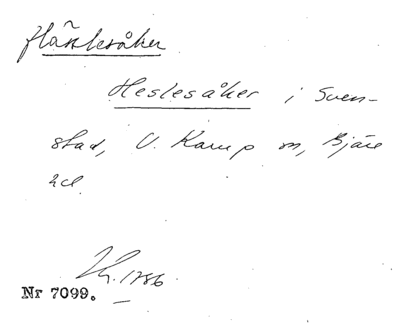 Hästesåker
Heslesåker i Sven-
stad, V. Karup sn, Bjäre
hd.
1786
Nr 7099.